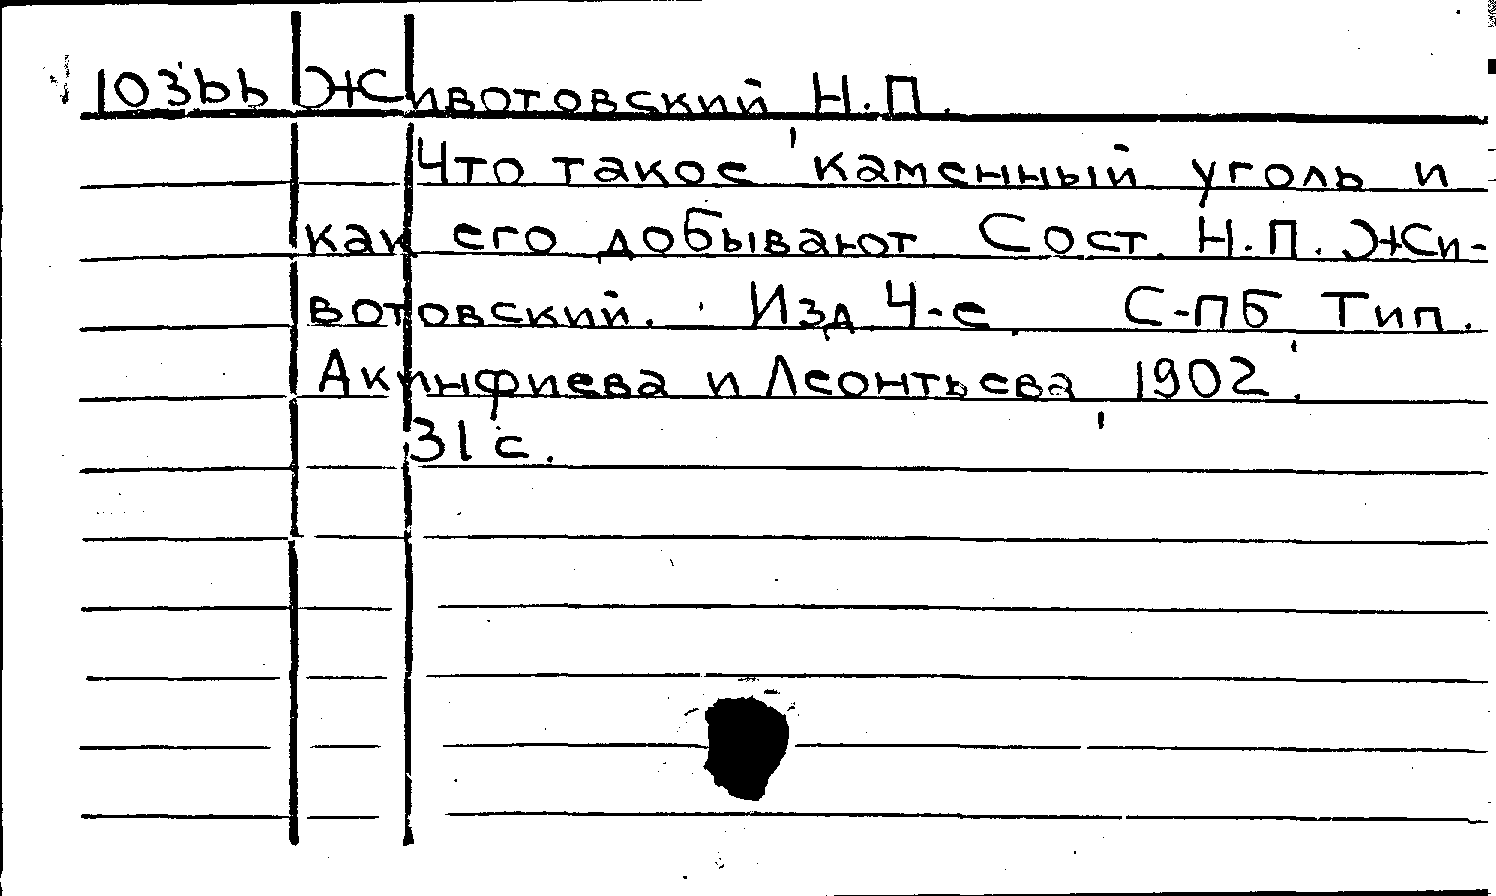 103ЬЬ Животовский Н.П.
Что такое каменный уголь и
как его добывают Сост. Н.П. Жи-
вотовский. Изд 4-е. С-ПБ Тип.
Акинфиева и Леонтьева 1902.
31 с.